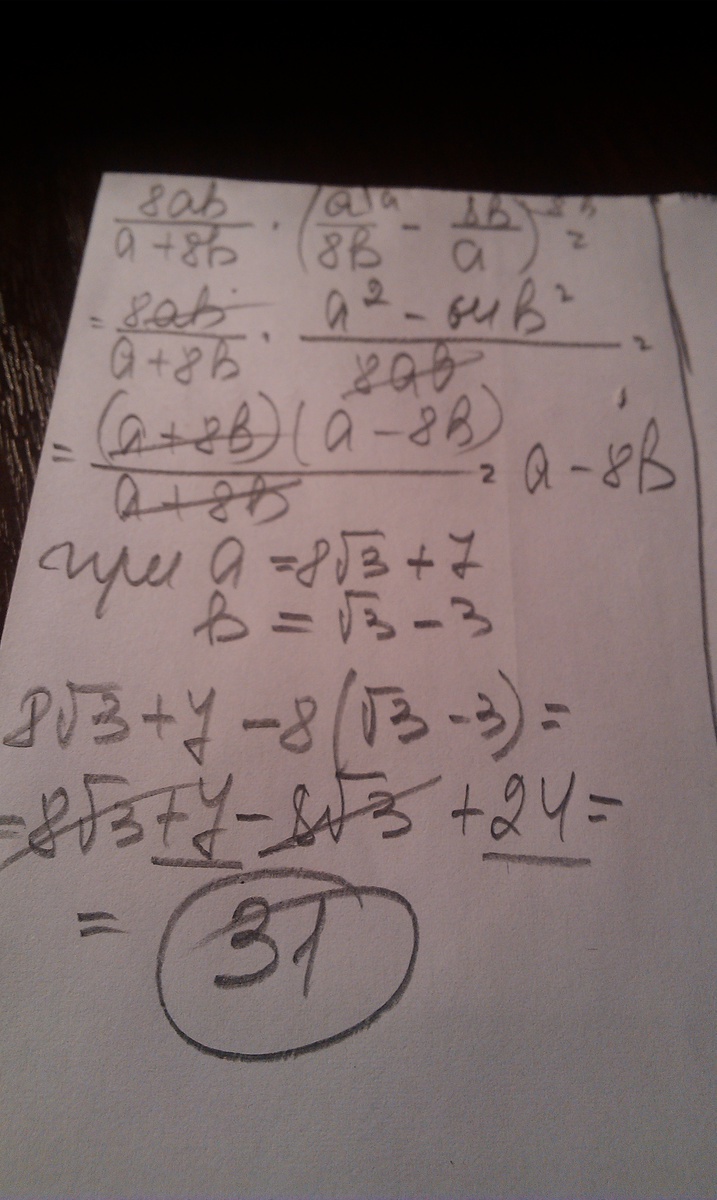 8ab/(a+8b) · (a\a/8b − 8b/a\8b) =
= 8ab/(a+8b) · (a² − 64b²)/8ab =
= (a+8b)(a−8b)/(a+8b) = a−8b
при a = 8√3 + 7
b = √3 − 3
8√3 + 7 − 8(√3 − 3) =
= 8√3 + 7 − 8√3 + 24 =
= 31